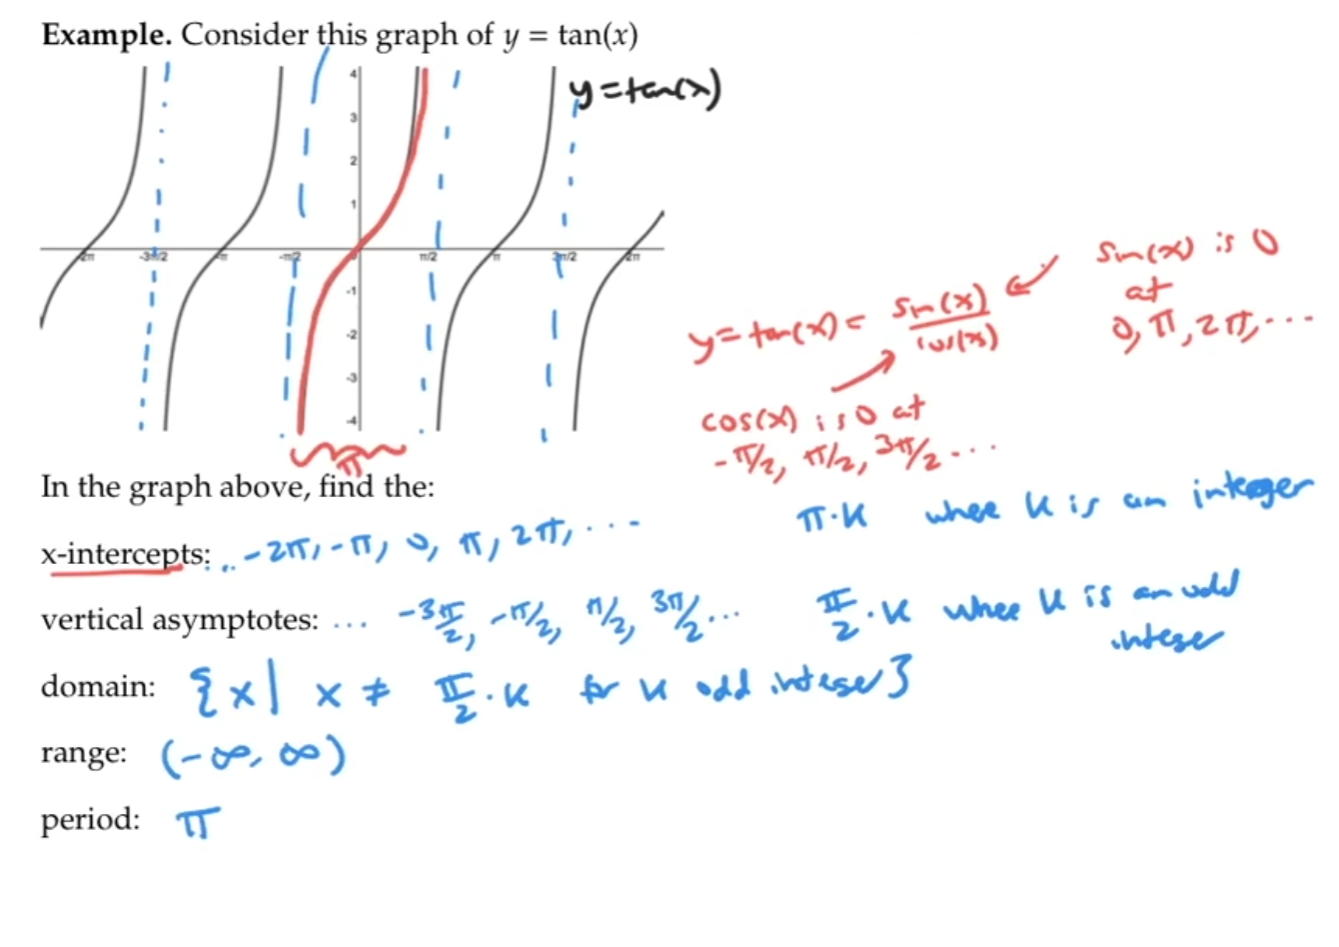 Example. Consider this graph of y = tan(x)
y=tan(x)
4
3
2
1
-1
-2
-3
-4
-2π -3π/2 -π -π/2 0 π/2 π 3π/2 2π
π
y=tan(x)= sin(x)/cos(x)
sin(x) is 0
at
0, π, 2π, ...
cos(x) is 0 at
-π/2, π/2, 3π/2 ...
In the graph above, find the:
x-intercepts: .. -2π, -π, 0, π, 2π, ... π·k where k is an integer
vertical asymptotes: ... -3π/2, -π/2, π/2, 3π/2 ... π/2·k where k is an odd
integer
domain: {x| x ≠ π/2·k for k odd integer}
range: (-∞, ∞)
period: π